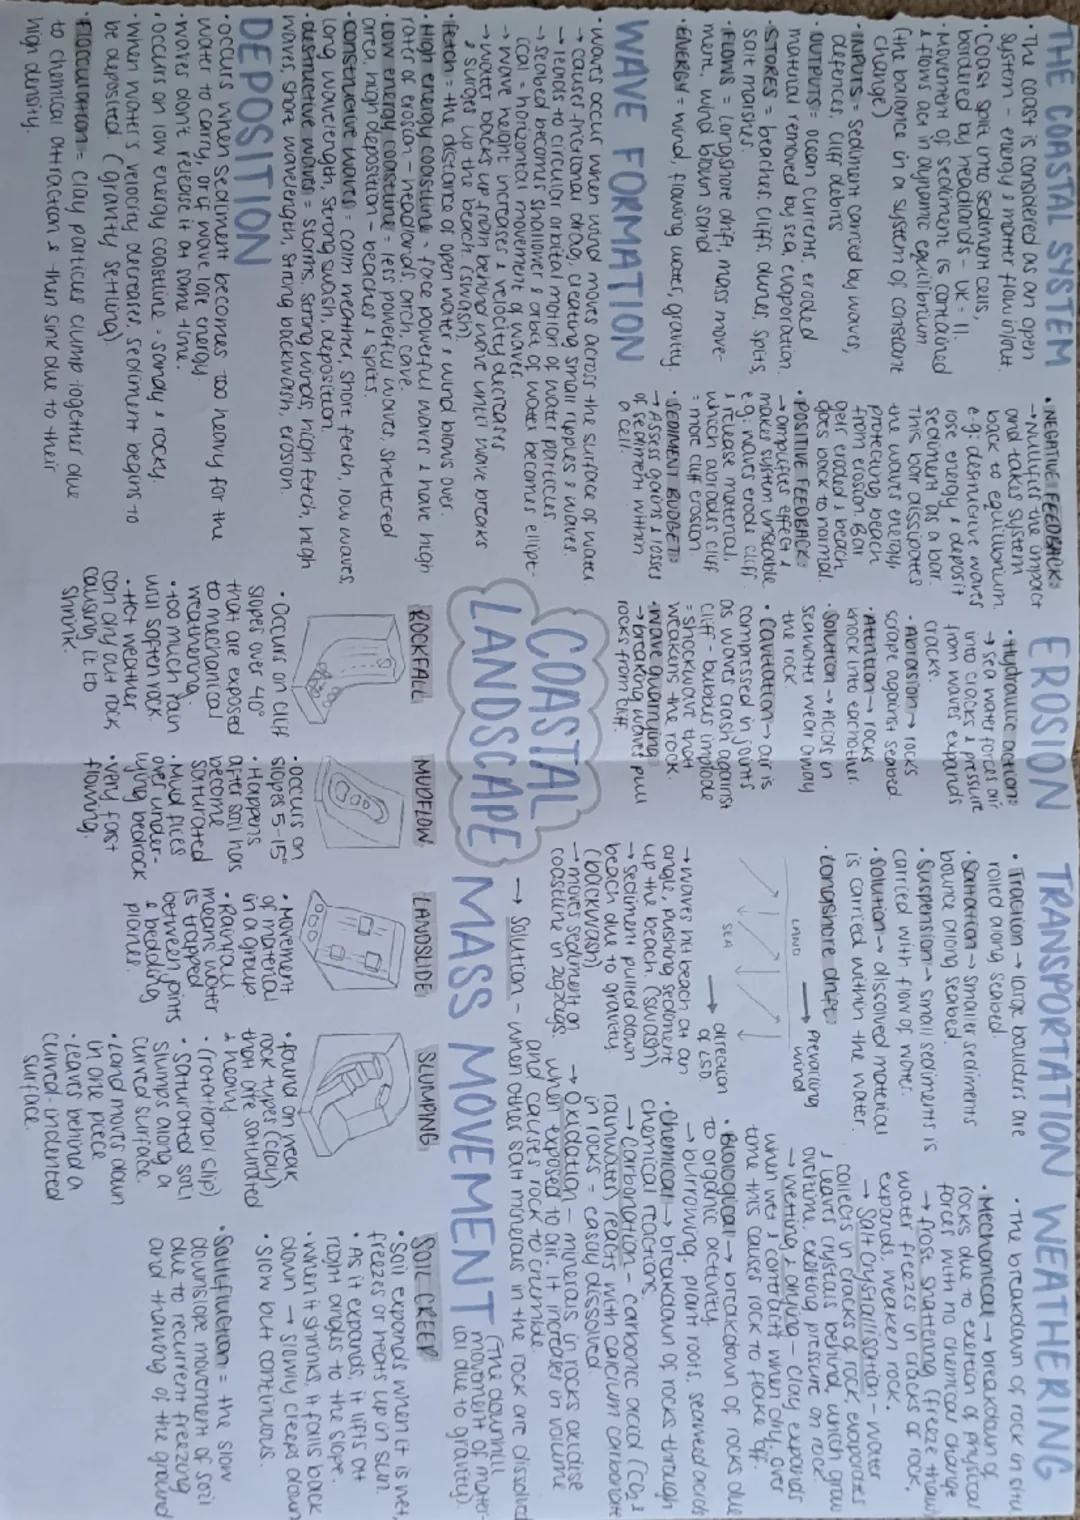 THE COASTAL SYSTEM
• The coast is considered as an open
system - energy & matter flow in/out.
• Coast split into sediment cells,
bordered by headlands - UK = 11.
• Movement of sediment is contained
& flows act in dynamic equilibrium
(the balance in a system of constant
change)
• INPUTS = Sediment carried by waves,
defences, cliff debris
• OUTPUTS = ocean currents, eroded
material removed by sea, evaporation.
• STORES = beaches, cliffs, dunes, spits,
salt marshes.
• FLOWS = longshore drift, mass move-
ment, wind blown sand
• ENERGY = wind, flowing water, gravity.
• NEGATIVE FEEDBACK:
→ Nullifies the impact
and takes system
back to equilibrium.
e.g: destructive waves
lose energy & deposit
sediment as a bar.
This bar dissipates
the waves energy,
protecting beach
from erosion. Bar
gets eroded & beach
goes back to normal.
• POSITIVE FEEDBACK:
→ amplifies effect &
makes system unstable
e.g: waves erode cliff
& release material,
which abrades cliff
= more cliff erosion
• SEDIMENT BUDGET:
→ Asses gains & losses
of sediment within
a cell.
EROSION
• Hydraulic action:
→ sea water forces air
into cracks & pressure
from waves expands
cracks.
• Abrasion → rocks
scrape against seabed.
• Attrition → rocks
knock into eachother.
• Solution → Acids in
seawater wear away
the rock.
• Cavitation → air is
compressed in joints
as waves crash against
cliff - bubbles implode
= shockwave that
weakens the rock.
• Wave quarrying
→ breaking waves pull
rocks from cliff.
TRANSPORTATION
• Traction → large boulders are
rolled along seabed.
• Saltation → smaller sediments
bounce along seabed.
• Suspension → small sediments is
carried with flow of water.
• Solution → dissolved material
is carried within the water.
• Longshore drift:
→ Prevailing
wind
LAND
SEA
→ direction
of LSD
→ waves hit beach at an
angle, pushing sediment
up the beach. (swash)
→ sediment pulled down
beach due to gravity.
(backwash)
→ moves sediment on
coastline in zigzags.
WEATHERING
• The breakdown of rock in situ
• Mechanical → breakdown of
rocks due to exertion of physical
forces with no chemical change
→ frost shattering (freeze thaw)
water freezes in cracks of rock,
expands, weaken rock.
→ Salt Crystallisation - water
collects in cracks of rock, evaporates
& leaves crystals behind, which grow
overtime, exerting pressure on rock.
→ wetting & drying - clay expands
when wet & contracts when dry. over
time this causes rock to flake off.
• Biological → breakdown of rocks due
to organic activity.
→ burrowing, plant roots, seaweed acids
• Chemical → breakdown of rocks through
chemical reactions.
→ Carbonation - carbonic acid (CO₂ &
rainwater) reacts with calcium carbonate
in rocks = easily dissolved.
→ Oxidation - minerals in rocks oxidise
when exposed to air. It increases in volume
and causes rock to crumble.
→ Solution - when other salt minerals in the rock are dissolved
WAVE FORMATION
• waves occur when wind moves across the surface of water
→ causes frictional drag, creating small ripples & waves.
→ leads to circular orbital motion of water particles
→ seabed becomes shallower & orbit of water becomes ellipt-
ical = horizontal movement of waves.
→ wave height increases & velocity decreases
→ water backs up from behind wave until wave breaks
& surges up the beach. (swash)
• fetch = the distance of open water & wind blows over
• High energy coastline = force powerful waves & have high
rates of erosion - headlands, arch, cave.
• Low energy coastline = less powerful waves. sheltered
area, high deposition - beaches & spits.
• constructive waves = calm weather, short fetch, low waves,
long wavelength, strong swash, deposition.
• destructive waves = storms, strong winds, high fetch, high
waves, short wavelength, strong backwash, erosion.
DEPOSITION
• occurs when sediment becomes too heavy for the
water to carry, or if wave lose energy.
• waves don't release it at same time.
• occurs on low energy coastline = sandy & rocky
• when water's velocity decreases, sediment begins to
be deposited. (Gravity settling)
• Flocculation = clay particles clump together due
to chemical attraction & then sink due to their
high density.
COASTAL
LANDSCAPE
MASS MOVEMENT
(The downhill
movement of mater-
ial due to gravity).
ROCKFALL
• Occurs on cliff
slopes over 40°
that are exposed
to mechanical
weathering.
• too much rain
will soften rock.
• Hot weather
can dry out rock,
causing it to
shrink.
MUDFLOW
• occurs on
slopes 5-15°
• Happens
after soil has
become
saturated
• Mud flies
over under-
lying bedrock
• very fast
flowing.
LANDSLIDE
• Movement
of material
in a group.
• Rainfall
means water
is trapped
between joints
& bedding
planes.
SLUMPING
• found on weak
rock types (clay)
that are saturated
& heavy
• (rotational slip)
• Saturated soil
slumps along a
curved surface.
• Land moves down
in one piece
• Leaves behind a
curved-indented
surface.
SOIL CREEP
• Soil expands when it is wet,
freezes or heats up in sun.
• As it expands, it lifts at
right angles to the slope.
• when it shrinks, it falls back
down → slowly creeps down
• Slow but continuous.
• Solifluction = the slow
downslope movement of soil
due to recurrent freezing
and thawing of the ground